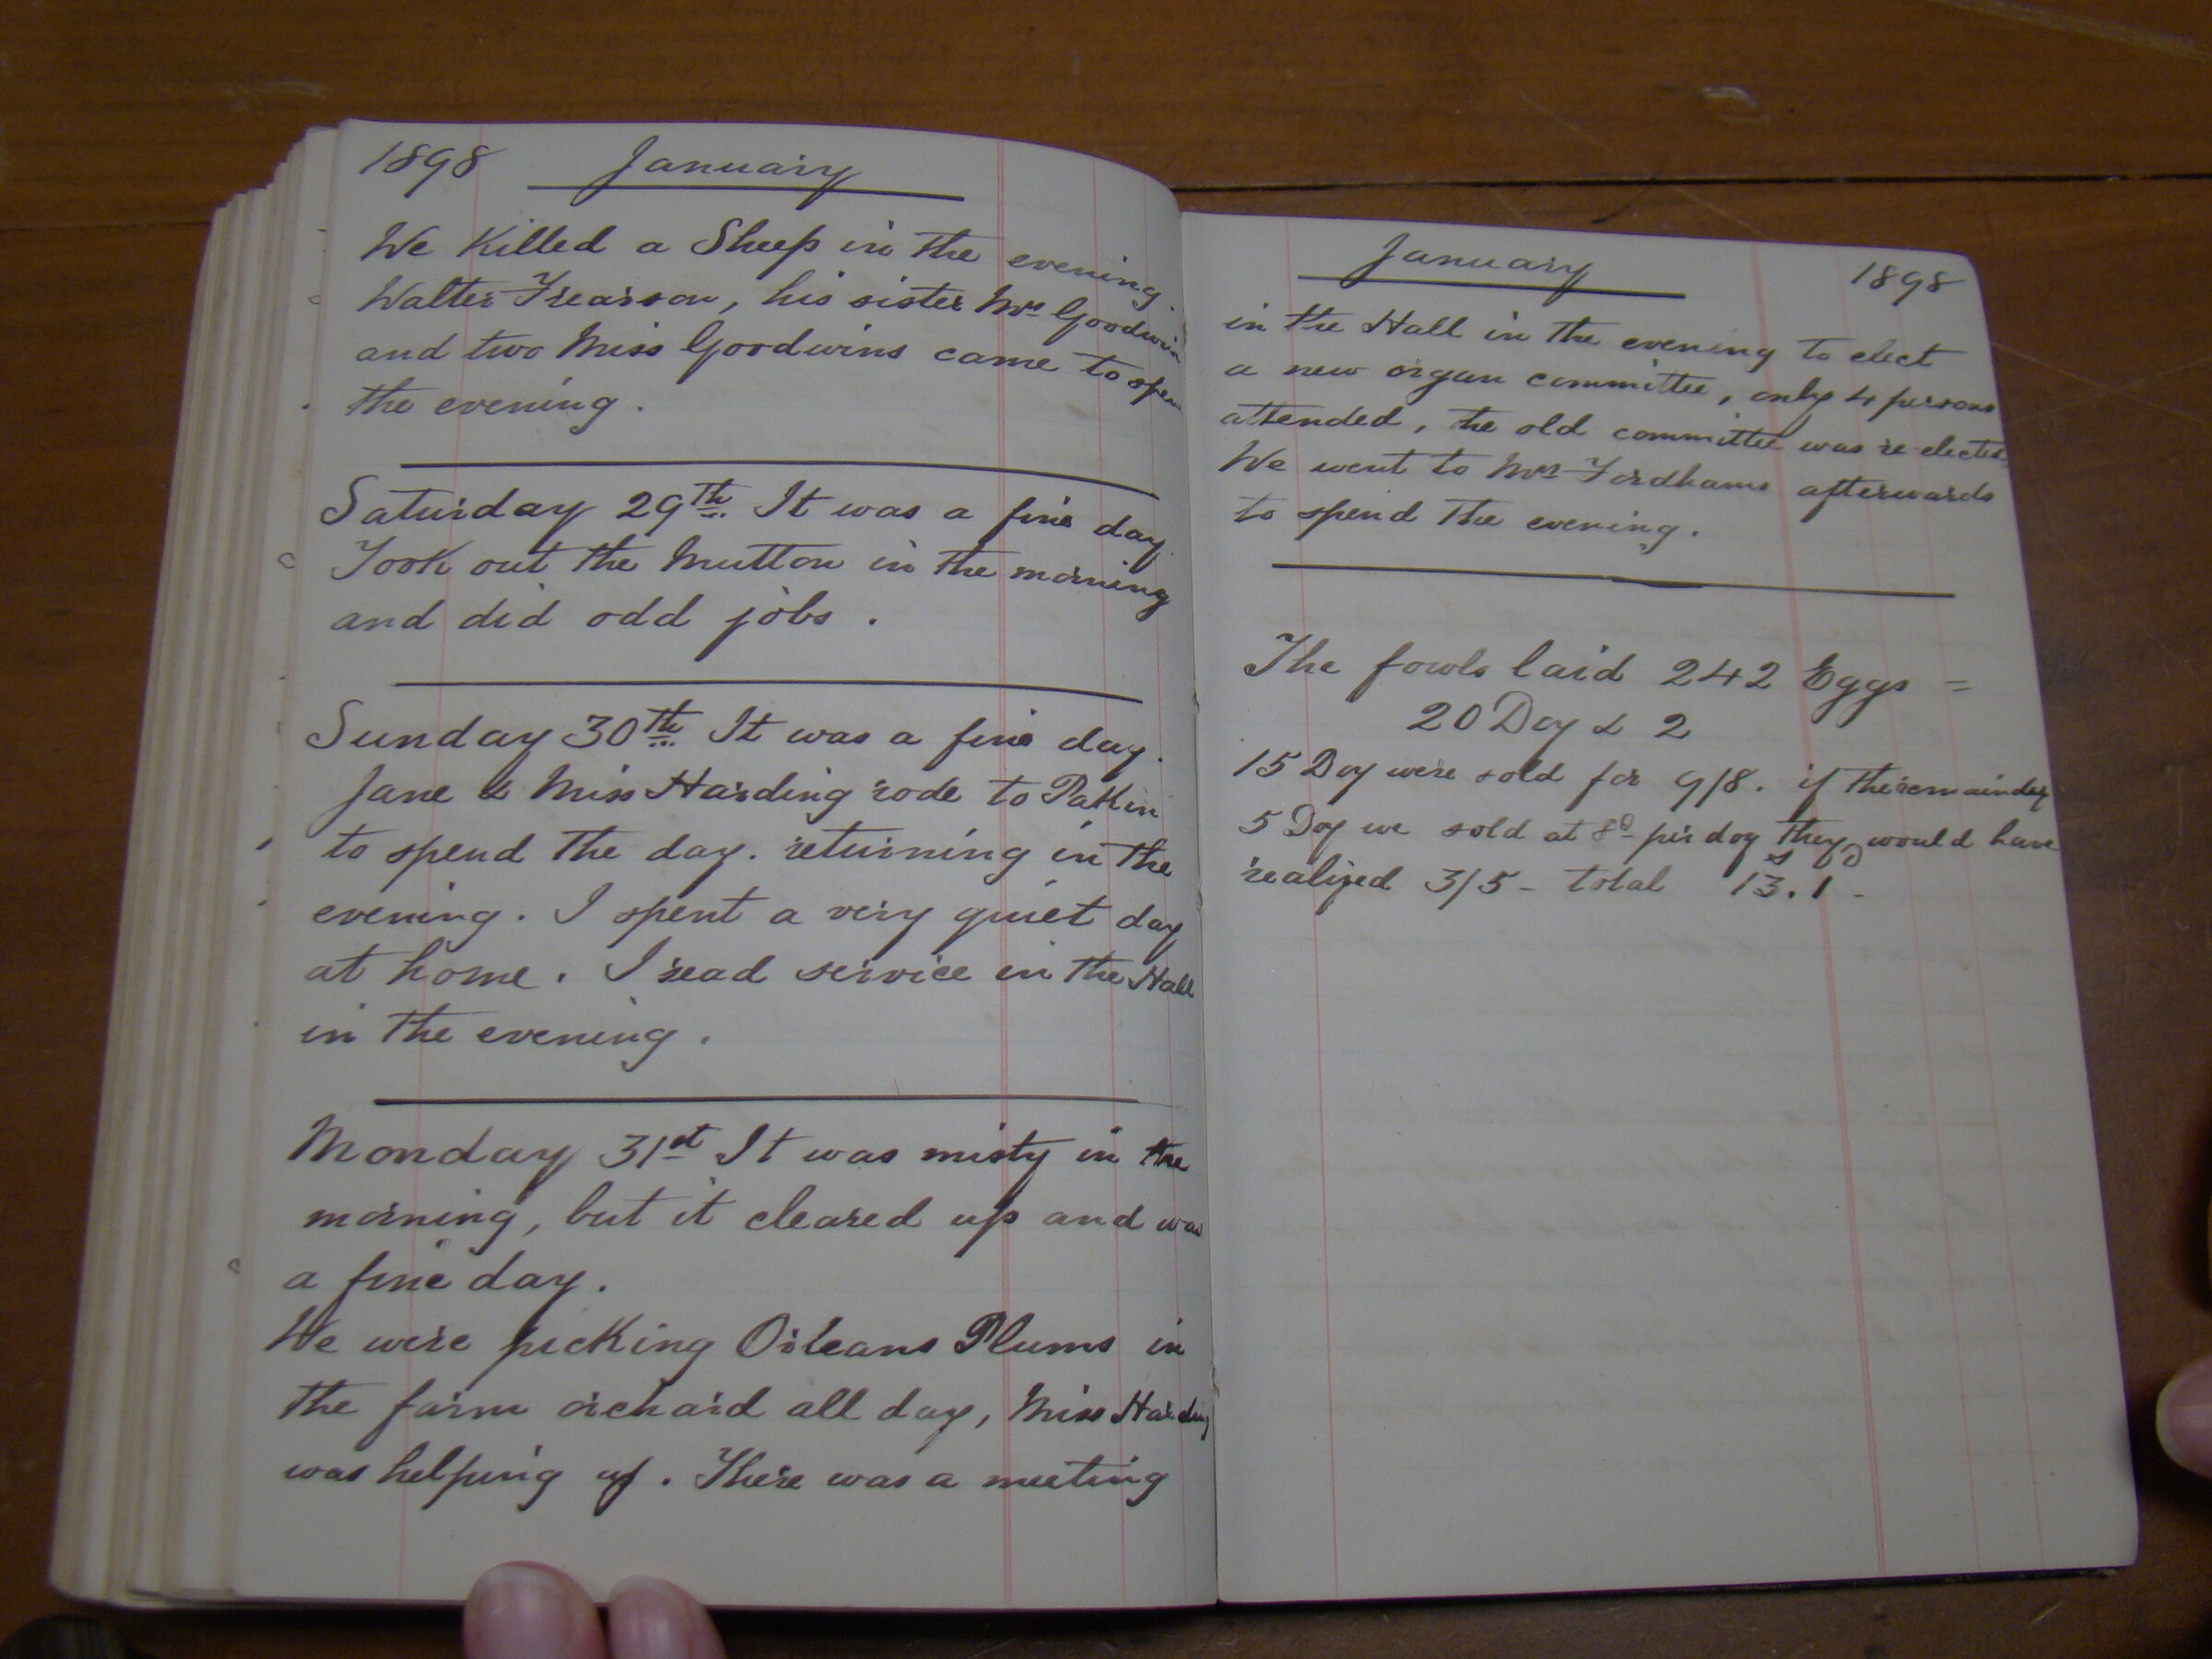 1898 January
We Killed a Sheep in the evening.
Walter Frearson, his sister Mrs Goodwin
and two Miss Goodwins came to spen
the evening.
Saturday 29th It was a fine day.
Took out the Mutton in the morning
and did odd jobs.
Sunday 30th It was a fine day.
Jane & Miss Harding rode to Patkin
to spend the day. returning in the
evening. I spent a very quiet day
at home. I read service in the Hall
in the evening.
Monday 31st It was misty in the
morning, but it cleared up and was
a fine day.
We were picking Orleans Plums in
the farm orchard all day, Miss Harding
was helping us. There was a meeting
January 1898
in the Hall in the evening to elect
a new organ committee, only 4 persons
attended, the old committee was re-elected.
We went to Mrs Fordhams afterwards
to spend the evening.
The fowls laid 242 Eggs =
20 Doz & 2
15 Doz were sold for 9/8. if the remainder
5 Doz we sold at 8D per doz they would have
realized 3/5 - total 13S.1D -